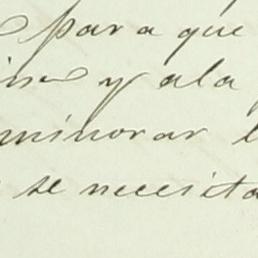 para que
y ala
minorar
se necesita